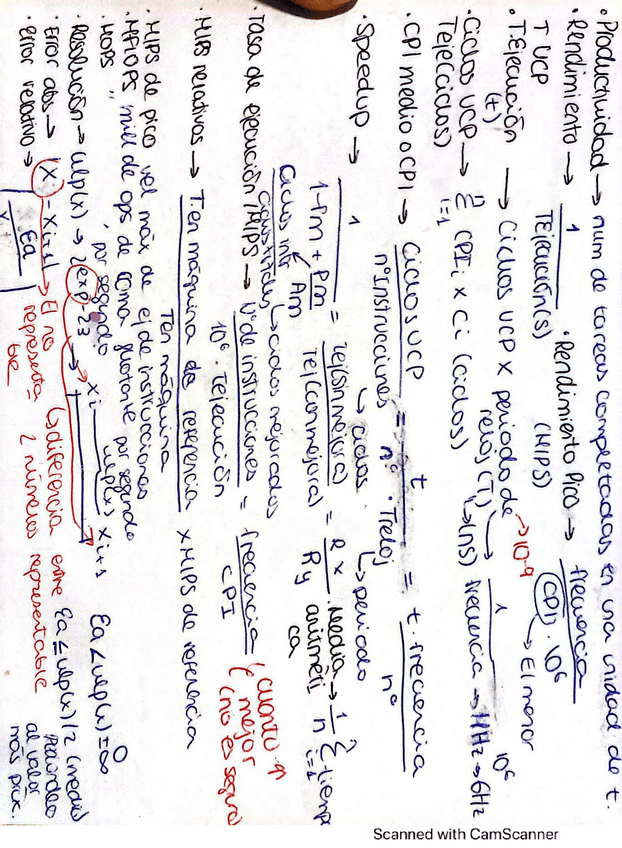 · Productividad → num de tareas completadas en una unidad de t.
· Rendimiento → 1 / TEjecución(s) · Rendimiento Pico → frecuencia / CPIi · 10⁶ → El menor
T UCP (MIPS)
· T.Ejecución (t) → Ciclos UCP x periodo de reloj (T) → 1 / frecuencia → MHz → GHz
10⁻⁹ (ns) 10⁶
· Ciclos UCP → Σ CPIi x Ci (ciclos)
n i=1
Teje(ciclos)
· CPI medio o CPI → Ciclos UCP / nºInstrucciones = t / nº · Treloj = t · frecuencia / nº
↳ periodo
· Speedup → 1 / 1-Pm + Pm/Am = Tej(sin mejora) / Tej(con mejora) = Rx / Ry
↳ ciclos
· Media aritmética → 1/n Σ tiemp
i=1
Ciclos
ciclos totales ↳ ciclos mejorados
· Tasa de ejecución / MIPS → Nº de instrucciones / 10⁶ · Tejecución = frecuencia / CPI
cuanto ↑ mejor (no es seguro
· MIPS relativos → T.en máquina de referencia / T en máquina x MIPS de referencia
· MIPS de pico vel máx de ej de instrucciones
· MFLOPS mill de ops de coma flotante por segundo
· MOPS " " por segundo
· Resolución → ulp(x) → 2exp-23 → xi ulp(x) xi+1
↳ diferencia entre 2 números representable
· Error abs → |x - xi+1| → El no representable
Ea < ulp(x) = ∞ 0
Ea ≤ ulp(x)/2 (medio) redondeo al valor más próx.
· Error relativo → | Ea / x |
Scanned with CamScanner